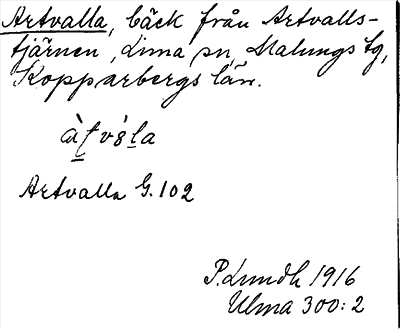 Artvalla, bäck från Artvalls-
tjärnen, Lima sn, Malungs tg,
Kopparbergs län.
Artvalla G. 102
P. Lundh 1916
Ulma 300:2